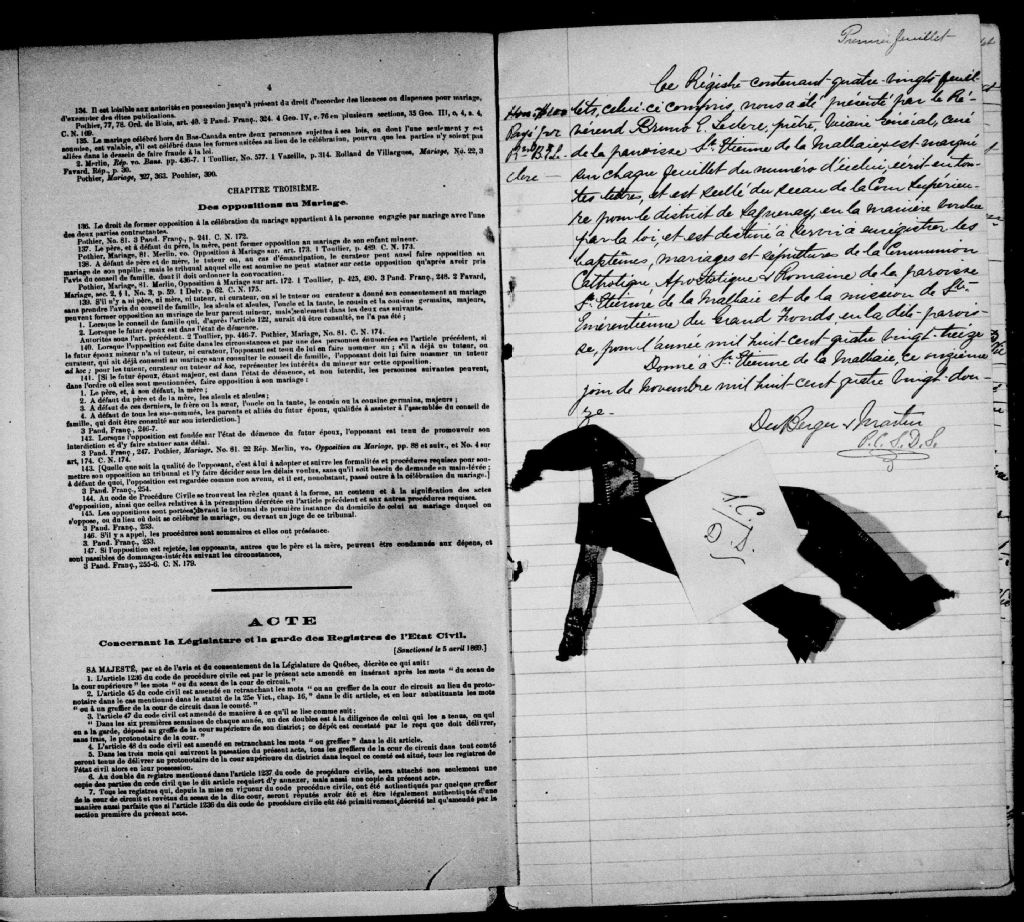 4
134. Il est loisible aux autorités en possession jusqu'à présent du droit d'accorder des licences ou dispenses pour mariage,
d'exempter des dites publications.
Pothier, 77, 78. Ord. de Blois, art. 40. 2 Pand. Franç., 324. 4 Geo. IV, c. 76 en plusieurs sections, 35 Geo. III, c. 4, s. 4,
C. N. 169.
135. Le mariage célébré hors du Bas-Canada entre deux personnes sujettes à ses lois, ou dont l'une seulement y est
soumise, est valable, s'il est célébré dans les formes usitées au lieu de la célébration, pourvu que les parties n'y soient pas
allées dans le dessein de faire fraude à la loi.
2. Merlin, Rép. vo. Bans. pp. 436-7. 1 Toullier, No. 577. 1 Vazeille, p. 314. Rolland de Villargues, Mariage, No. 22, 3
Favard. Rép., p. 30.
Pothier, Mariage, 327, 363. Pouhier, 390.
CHAPITRE TROISIÈME.
Des oppositions au Mariage.
136. Le droit de former opposition à la célébration du mariage appartient à la personne engagée par mariage avec l'une
des deux parties contractantes.
Pothier, No. 81. 3 Pand. Franç., p. 241. C. N. 172.
137. Le père, et à défaut du père, la mère, peut former opposition au mariage de son enfant mineur.
Pothier, Mariage, 81. Merlin, vo. Opposition à Mariage sur. art. 173. 1 Toullier, p. 489. C. N. 173.
138. A défaut de père et de mère, le tuteur ou, au cas d'émancipation, le curateur peut aussi faire opposition au
mariage de son pupille; mais le tribunal auquel elle est soumise ne peut statuer sur cette opposition qu'après avoir pris
l'avis du conseil de famille, dont il doit ordonner la convocation.
Pothier, Mariage, 81. Merlin, Opposition à Mariage sur art. 172. 1 Toullier, p. 425, 490. 3 Pand. Franç., 248. 2 Favard,
Mariage, sec. 2, § 1, No. 3, p. 59. 1 Delv. p. 62. C. N. 175.
139. S'il n'y a ni père, ni mère, ni tuteur, ni curateur, ou si le tuteur ou curateur a donné son consentement au mariage
sans prendre l'avis du conseil de famille, les aïeuls et aïeules, l'oncle et la tante, le cousin et la cousine germains, majeurs,
peuvent former opposition au mariage de leur parent mineur, mais seulement dans les deux cas suivants.
1. Lorsque le conseil de famille qui, d'après l'article 122, aurait dû être consulté, ne l'a pas été;
2. Lorsque le futur époux est dans l'état de démence.
Autorités sous l'art. précédent. 2 Toullier, pp. 446-7. Pothier, Mariage, No. 81. C. N. 174.
140. Lorsque l'opposition est faite dans les circonstances et par une des personnes énumérées en l'article précédent, si
le futur époux mineur n'a ni tuteur, ni curateur, l'opposant est tenu de lui en faire nommer un; s'il a déjà un tuteur, ou
curateur, qui ait déjà consenti au mariage sans consulter le conseil de famille, l'opposant doit lui faire nommer un tuteur
ad hoc; pour les tuteur, curateur ou tuteur ad hoc, représenter les intérêts du mineur sur cette opposition.
141. [Si le futur époux, étant majeur, est dans l'état de démence, et non interdit, les personnes suivantes peuvent,
dans l'ordre où elles sont mentionnées, faire opposition à son mariage:
1. Le père, et, à son défaut, la mère;
2. A défaut du père et de la mère, les aïeuls et aïeules;
3. A défaut de ces derniers, le frère ou la sœur, l'oncle ou la tante, le cousin ou la cousine germains, majeurs;
4. A défaut de tous les sus-nommés, les parents et alliés du futur époux, qualifiés à assister à l'assemblée du conseil de
famille, qui doit être consulté sur son interdiction.]
3 Pand. Franç., 246-7.
142. Lorsque l'opposition est fondée sur l'état de démence du futur époux, l'opposant est tenu de promouvoir son
interdiction et d'y faire statuer sans délai.
3 Pand. Franç., 247. Pothier, Mariage, No. 81. 22 Rép. Merlin, vo. Opposition au Mariage, pp. 88 et suiv., et No. 4 sur
art, 174. C. N. 174.
143. [Quelle que soit la qualité de l'opposant, c'est à lui à adopter et suivre les formalités et procédures requises pour sou-
mettre son opposition au tribunal et l'y faire décider sous les délais voulus, sans qu'il soit besoin de demande en main-levée;
à défaut de quoi, l'opposition est regardée comme non avenu, et il est, nonobstant, passé outre à la célébration du mariage.]
3 Pand. Franç., 254.
144. Au code de Procédure Civile se trouvent les règles quant à la forme, au contenu et à la signification des actes
d'opposition, ainsi que celles relatives à la péremption décrétée en l'article précédent et aux autres procédures requises.
145. Les oppositions sont portées devant le tribunal de première instance du domicile de celui au mariage duquel on
s'oppose, ou du lieu où doit se célébrer le mariage, ou devant un juge de ce tribunal.
3 Pand. Franç., 253.
146. S'il y a appel, les procédures sont sommaires et elles ont préséance.
3. Pand. Franç., 253.
147. Si l'opposition est rejetée, les opposants, autres que le père et la mère, peuvent être condamnés aux dépens, et
sont passibles de dommages-intérêts suivant les circonstances,
3 Pand. Franç., 255-6. C. N. 179.
ACTE
Concernant la Législature et la garde des Registres de l'Etat Civil.
[Sanctionné le 5 avril 1869.]
SA MAJESTÉ, par et de l'avis et du consentement de la Législature de Québec, décrète ce qui suit:
1. L'article 1236 du code de procédure civile est par le présent acte amendé en insérant après les mots "du sceau de
la cour supérieure" les mots "ou du sceau de la cour de circuit."
2. L'article 45 du code civil est amendé en retranchant les mots "ou au greffier de la cour de circuit au lieu du proto-
notaire dans le cas mentionné dans le statut de la 25e Vict., chap. 16," dans le dit article, et en leur substituants les mots
"ou à un greffier de la cour de circuit dans le comté."
3. l'article 47 du code civil est amendé de manière à ce qu'il se lise comme suit:
"Dans les six premières semaines de chaque année, un des doubles est à la diligence de celui qui les a tenus, ou qui
en a la garde, déposé au greffe de la cour supérieure de son district; ce dépôt est constaté par le reçu que doit délivrer,
sans frais, le protonotaire de la cour."
4. L'article 48 du code civil est amendé en retranchant les mots "ou greffier" dans le dit article.
5. Dans les trois mois qui suivront la passation du présent acte, tous les greffiers de la cour de circuit dans tout comté
seront tenus de délivrer au protonotaire de la cour supérieure du district dans lequel ce comté est situé, tous les registres de
l'état civil alors en leur possession.
6. Au double du registre mentionné dans l'article 1237 du code de procédure civile, sera attaché non seulement une
copie des parties du code civil que le dit article requiert d'y annexer, mais aussi une copie du présent acte.
7. Tous les registres qui, depuis la mise en vigueur du code procédure civile, ont été authentiqués par quelque greffier
de la cour de circuit et revêtus du sceau de la dite cour, seront réputés avoir été et être légalement authentiqués d'une
manière aussi parfaite que si l'article 1236 du dit code de procédure civile eût été primitivement décrété tel qu'amendé par la
section première du présent acte.
Premier feuillet
Ce Régistre contenant quatre-vingts feuil-
lets, celui-ci compris, nous a été présenté par le Ré-
vérend Bruno E. Leclerc, prêtre, Vicaire Général, curé
de la paroisse St. Etienne de la Malbaie, est marqué
sur chaque feuillet du numéro d'icelui, écrit en tou-
tes lettres, et est scellé du sceau de la Cour Supérieu-
re pour le district de Saguenay, en la manière voulue
par la loi, et est destiné à servir à enregistrer les
baptêmes, mariages et sépultures de la Communion
Catholique Apostolique & Romaine de la paroisse
St. Etienne de la Malbaie et de la mission de Ste.
Emérentienne du Grand Fonds en la dite parois-
se, pour l'année mil huit cent quatre vingt-treize
Donné à St. Etienne de la Malbaie, ce onzième
jour de novembre mil huit cent quatre vingt-dou-
ze.
DuBerger & Martin
P. C. S. D. S.
Payé par
clerc